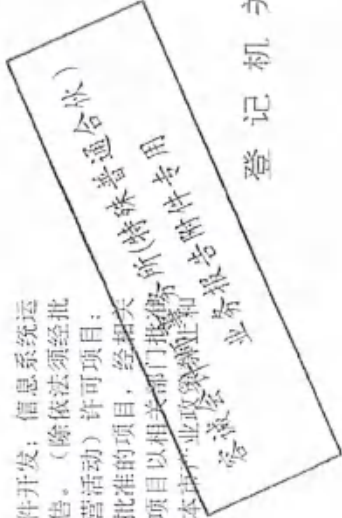 件开发；信息系统运
告。（除依法须经批
营活动）许可项目：
批准的项目，经相关
项目以相关部门批准
本市产业政策禁止和
容诚会计师事务所(特殊普通合伙)
业务报告附件专用
登记机关